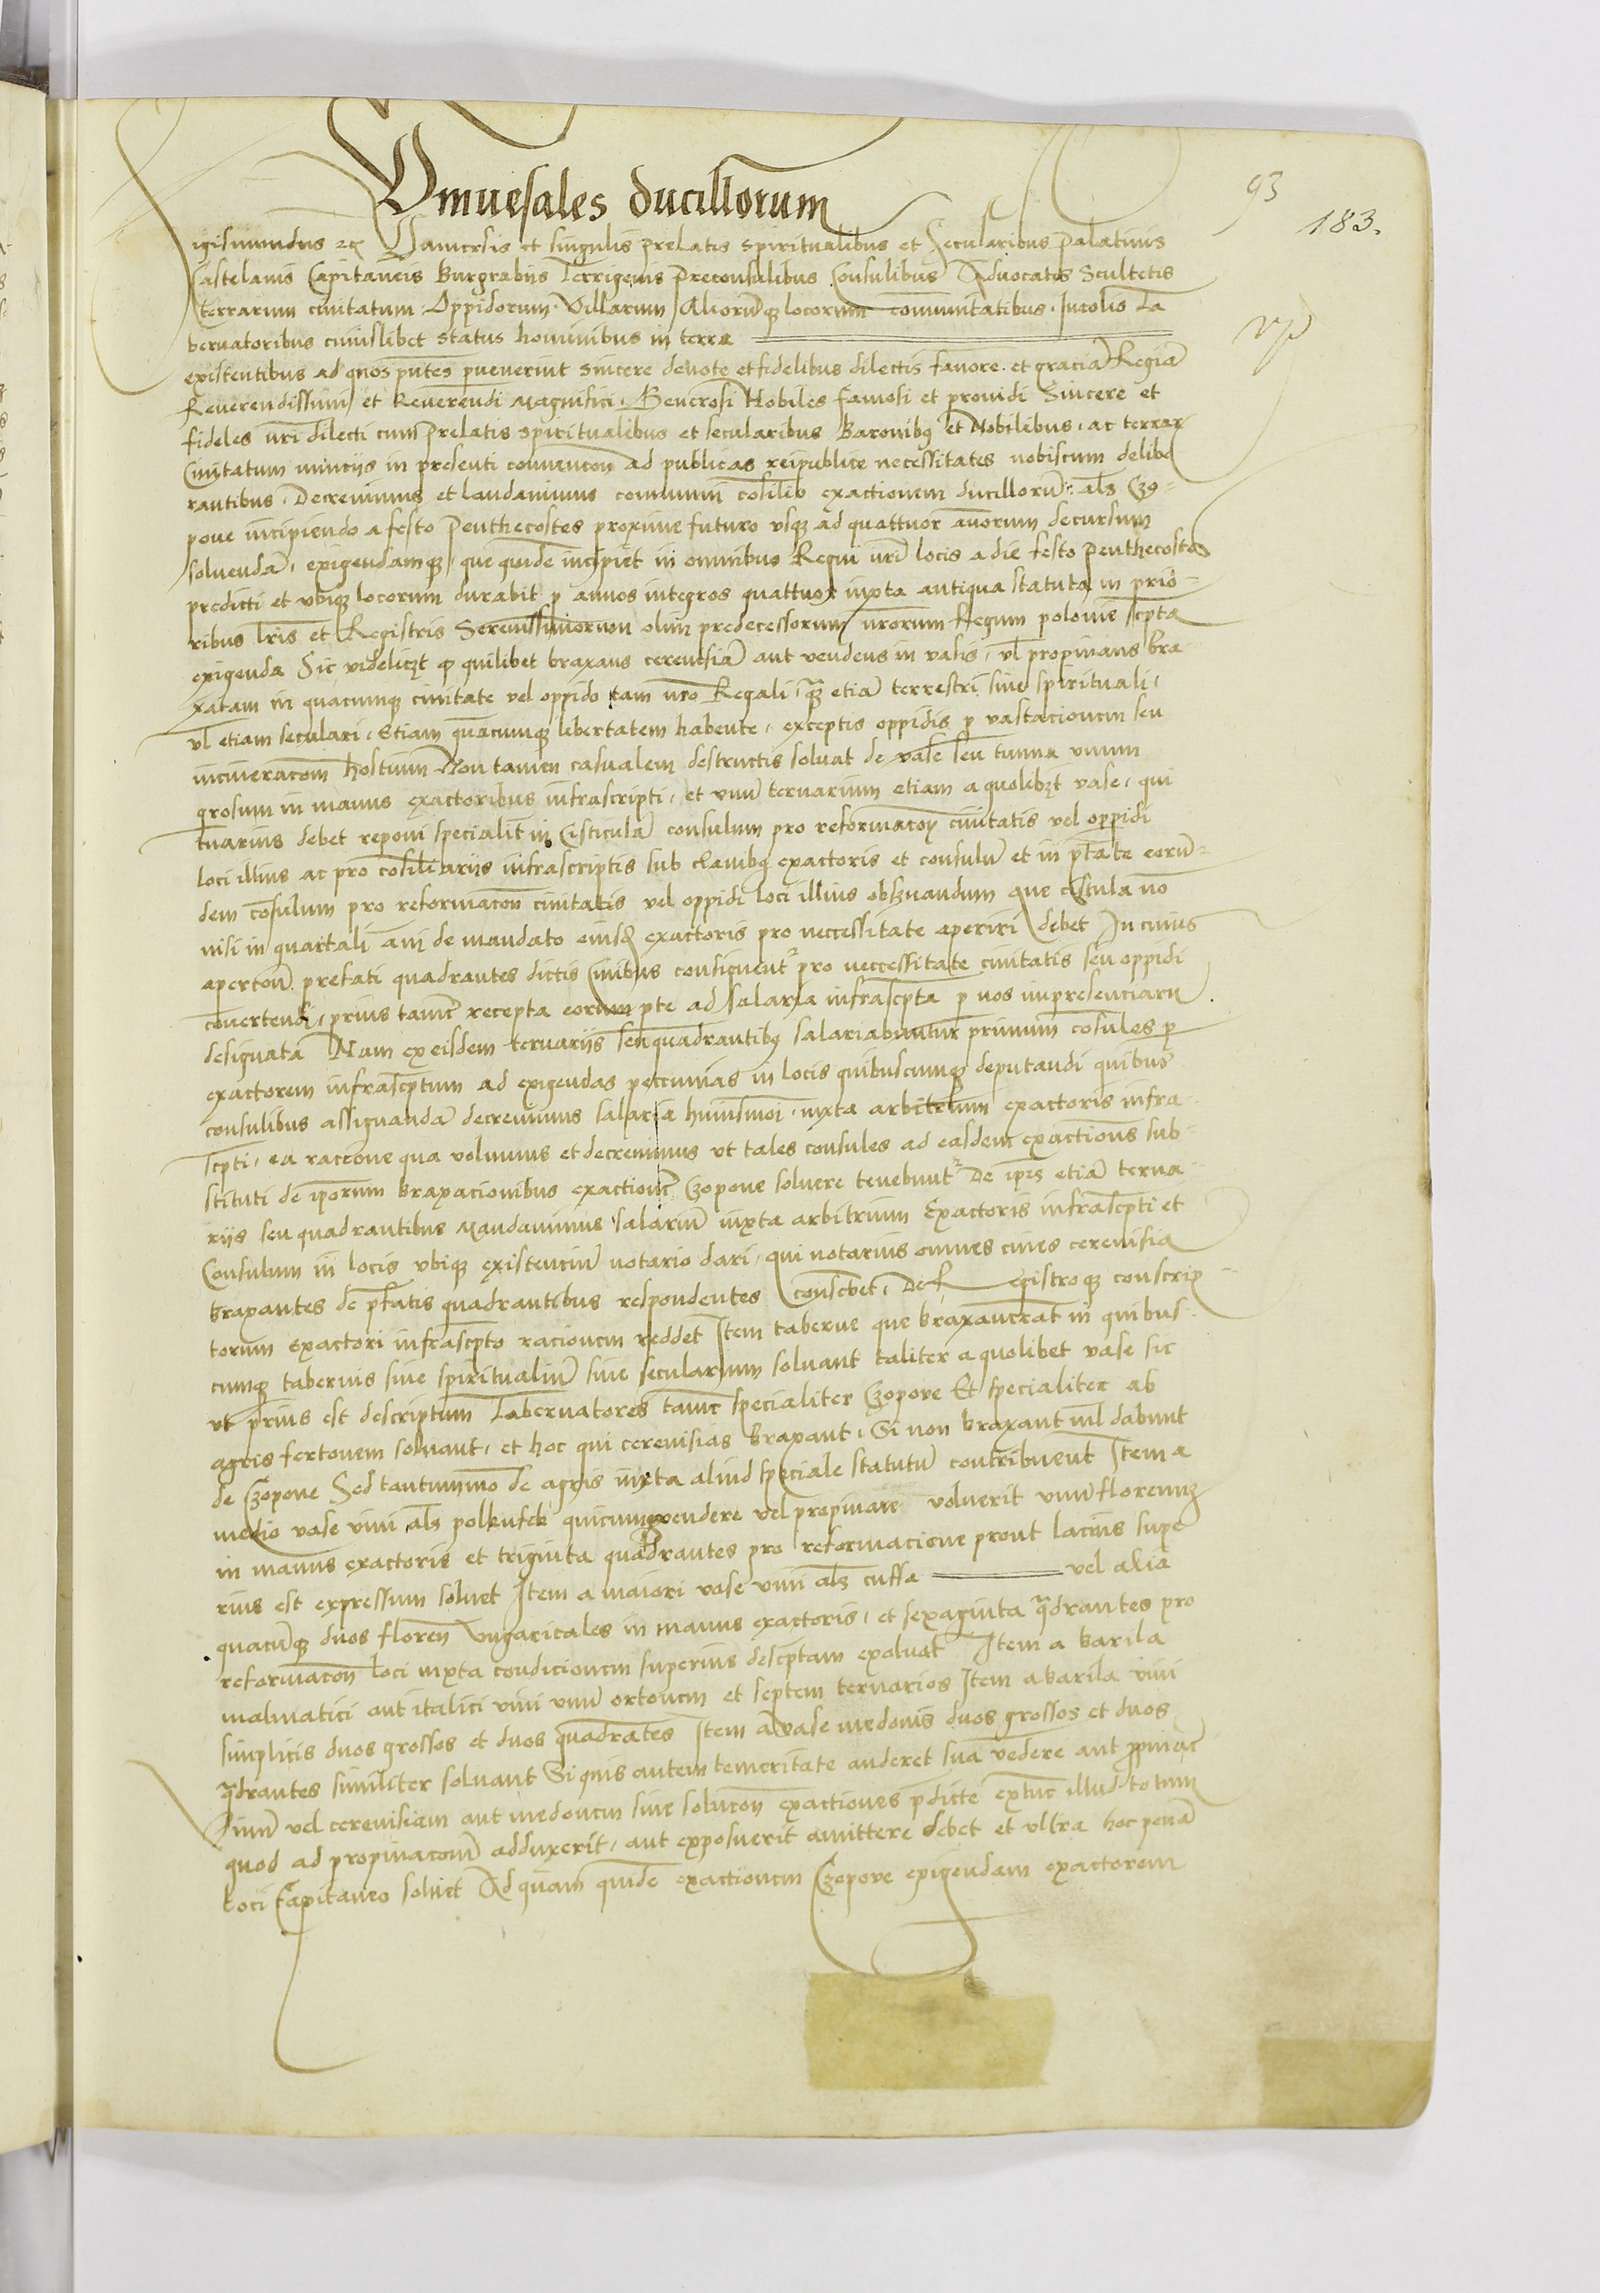 93
183.
Vniuersales ducillorum
Sigismundus etc Vniuersis et singulis prelatis spiritualibus et Secularibus Palatinis
Castelanis Capitaneis Burgrabiis Terrigenis Preconsulibus Consulibus Aduocatis Scultetis
terrarum ciuitatum Oppidorum Villarum Aliorumq locorum comunitatibus Incolis Ta
bernatoribus cuiuslibet status hominibus in terra
existentibus ad quos pntes peruenerint sincere deuote et fidelibus dilectis fauore et gracia Regia
Reuerendissimi et Reuerendi Magnifici Generosi Nobiles famosi et prouidi Sincere et
fideles nri dilecti cum Prelatis spiritualibus et secularibus Baronibq et Nobilibus ac terrar
Ciuitatum nunciis in presenti conuencon ad publicas reipublice necessitates nobiscum delibe
rantibus Decreuimus et laudauimus comuni cosilio exactionem ducillorum als Czo
powe incipiendo a festo Penthecostes proxime futuro vsq ad quattuor annorum decursum
soluendam exigendamq que quide incipiet in omnibus Regni nri locis a die festo Penthecosten
predicti et vbiq locorum durabit p annos integros quattuor iuxta antiqua statuta in prio
ribus lris et Registris Serenissimorum olim predecessorum nrorum Regum polonie scpta
exigenda Sic videliczt q quilibet braxans cereuisia aut vendens in vasis vl propinans bra
xatam in quacumq ciuitate vel oppido tam nro Regali q etia terrestri siue spirituali
vl etiam seculari Etiam quacumq libertatem habente exceptis oppidis p vastacionem seu
incineracom hostium Non tamen casualem destructis soluat de vase seu tunna vnum
grosum in manus exactoribus infrascripti et vnu ternarium etiam a quolibzt vase qui
tnarius debet reponi specialit in Cisticula consulum pro reformacoy ciuitatis vel oppidi
loci illius ac pro cosiliariis infrascriptis sub clauibq exactoris et consulu et in ptate eorun
dem consulum pro reformacon ciuitatis vel oppidi loci illius obseruandum que cistula no
nisi in quartali ani de mandato eiusd exactoris pro neccessitate aperiri debet In cuius
aperton prefati quadrantes dictis Ciuibus consignent pro neccessitate ciuitatis seu oppidi
conertendi prius tame recepta eorum pte ad salaria infrascpta p nos impresenciaru
designata Nam ex eisdem ternariis seu quadrantibq salariabuntur primum cosules p
exactorem infrascptum ad exigendas peccunias in locis quibuscumq deputandi quibus
consulibus assignanda decreuimus salaria huiusmoi iuxta arbitrium exactoris infra
scpti ea raccone qua volumus et decreuimus vt tales consules ad easdem exactions sub
stituti de iporum braxacionibus exactione Czopowe soluere tenebunt De ipis etia terna
riis seu quadrantibus Mandauimus salariu iuxta arbitrium Exactoris infrascpti et
Consulum in locis vbiq existenciu notario dari qui notarius omnes ciues cereuisia
braxantes de pfatis quadrantibus respondentes conscbet De Registroq conscrip
torum exactori infrascpto racionem reddet Item taberne que braxauerat in quibus
cumq tabernis siue spiritualiu siue secularium soluant taliter a quolibet vase sic
vt prius est descriptum Tabernatores tamen specialiter Czopowe Et specialiter ab
agris fertonem soluant et hoc qui cereuisias braxant Si non braxant nil dabunt
de Czopowe Sed tantummo de agris iuxta aliud speciale statutu contribuent Item a
medio vase vini als polkufek quicumq vendere vel propinare voluerit vnu florenum
in manus exactoris et triginta quadrantes pro reformacione prout lacius supe
rius est expressum soluet Item a maiori vase vini als cuffa vel alia
quacuq duos floren Vngaricales in manus exactoris et sexaginta qdrantes pro
reformacon loci iuxta condicionem superius descptam exoluat Item a barila
malmatici aut italici vini vnu ortonem et septem ternarios Item a barila vini
simplicis duos grossos et duos quadrates Item a vase medonis duos grossos et duos
qdrantes similiter soluant Si quis autem temeritate auderet sua vedere aut ppinare
Vinu vel cereuisiam aut medonem sine solucon exactiones pdicte extuc illud totum
quod ad propinacom adduxerit aut exposuerit amittere debet et vltra hoc pena
loci Capitaneo soluet Ad quam quide exactionem Czopowe exigendam exactorem